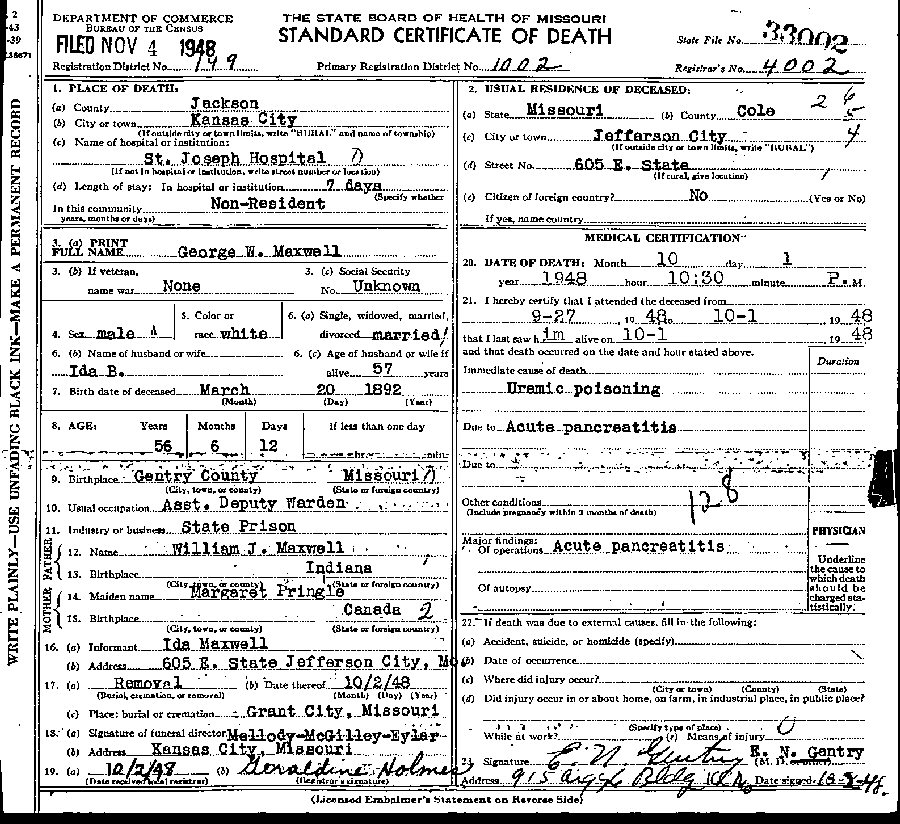 WRITE PLAINLY—USE UNFADING BLACK INK—MAKE A PERMANENT RECORD
DEPARTMENT OF COMMERCE
BUREAU OF THE CENSUS
FILED NOV 4 1948
Registration District No. 149
THE STATE BOARD OF HEALTH OF MISSOURI
STANDARD CERTIFICATE OF DEATH
Primary Registration District No. 1002
State File No. 33002
Registrar's No. 4002
1. PLACE OF DEATH:
(a) County Jackson
(b) City or town Kansas City
(If outside city or town limits, write "RURAL" and name of township)
(c) Name of hospital or institution:
St. Joseph Hospital
(If not in hospital or institution, write street number or location)
(d) Length of stay: In hospital or institution 7 days
(Specify whether
In this community Non-Resident
years, months or days)
2. USUAL RESIDENCE OF DECEASED:
(a) State Missouri (b) County Cole
(c) City or town Jefferson City
(If outside city or town limits, write "RURAL")
(d) Street No. 605 E. State
(If rural, give location)
(e) Citizen of foreign country? No (Yes or No)
If yes, name country
3. (a) PRINT
FULL NAME George W. Maxwell
3. (b) If veteran, 3. (c) Social Security
name war None No. Unknown
5. Color or 6. (a) Single, widowed, married,
4. Sex male race white divorced married
6. (b) Name of husband or wife 6. (c) Age of husband or wife if
Ida B. alive 57 years
7. Birth date of deceased March 20 1892
(Month) (Day) (Year)
8. AGE: Years Months Days If less than one day
56 6 12
9. Birthplace Gentry County Missouri
(City, town, or county) (State or foreign country)
10. Usual occupation Asst. Deputy Warden
11. Industry or business State Prison
FATHER
12. Name William J. Maxwell
13. Birthplace Indiana
(City, town, or county) (State or foreign country)
MOTHER
14. Maiden name Margaret Pringle
15. Birthplace Canada 2
(City, town, or county) (State or foreign country)
16. (a) Informant Ida Maxwell
(b) Address 605 E. State Jefferson City, Mo
17. (a) Removal (b) Date thereof 10/2/48
(Burial, cremation, or removal) (Month) (Day) (Year)
(c) Place: burial or cremation Grant City, Missouri
18. (a) Signature of funeral director Mellody-McGilley-Eylar
(b) Address Kansas City, Missouri
19. (a) 10/2/48 (b) Geraldine Holmes
(Date received local registrar) (Registrar's signature)
MEDICAL CERTIFICATION
20. DATE OF DEATH: Month 10 day 1
year 1948 hour 10:30 minute P. M
21. I hereby certify that I attended the deceased from
9-27, 1948, 10-1, 1948
that I last saw him alive on 10-1 1948
and that death occurred on the date and hour stated above.
Duration
Immediate cause of death
Uremic poisoning
Due to Acute pancreatitis
Due to
128
Other conditions
(Include pregnancy within 3 months of death)
PHYSICIAN
Major findings:
Of operations Acute pancreatitis
Of autopsy
Underline
the cause to
which death
should be
charged sta-
tistically.
22. If death was due to external causes, fill in the following:
(a) Accident, suicide, or homicide (specify)
(b) Date of occurrence
(c) Where did injury occur?
(City or town) (County) (State)
(d) Did injury occur in or about home, on farm, in industrial place, in public place?
(Specify type of place)
While at work? (e) Means of injury
23. Signature E. N. Gentry E. N. Gentry (M. D.
Address 915 Bldg Date signed
(Licensed Embalmer's Statement on Reverse Side)